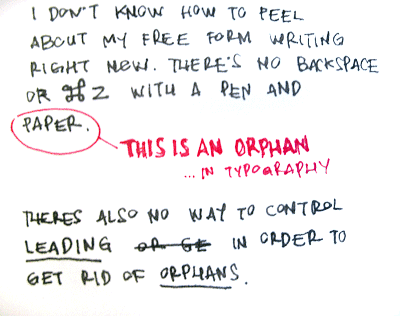 I DON'T KNOW HOW TO PEEL
ABOUT MY FREE FORM WRITING
RIGHT NOW. THERE'S NO BACKSPACE
OR ⌘ Z WITH A PEN AND
PAPER.
THIS IS AN ORPHAN
...IN TYPOGRAPHY
THERES ALSO NO WAY TO CONTROL
LEADING OR GE IN ORDER TO
GET RID OF ORPHANS.